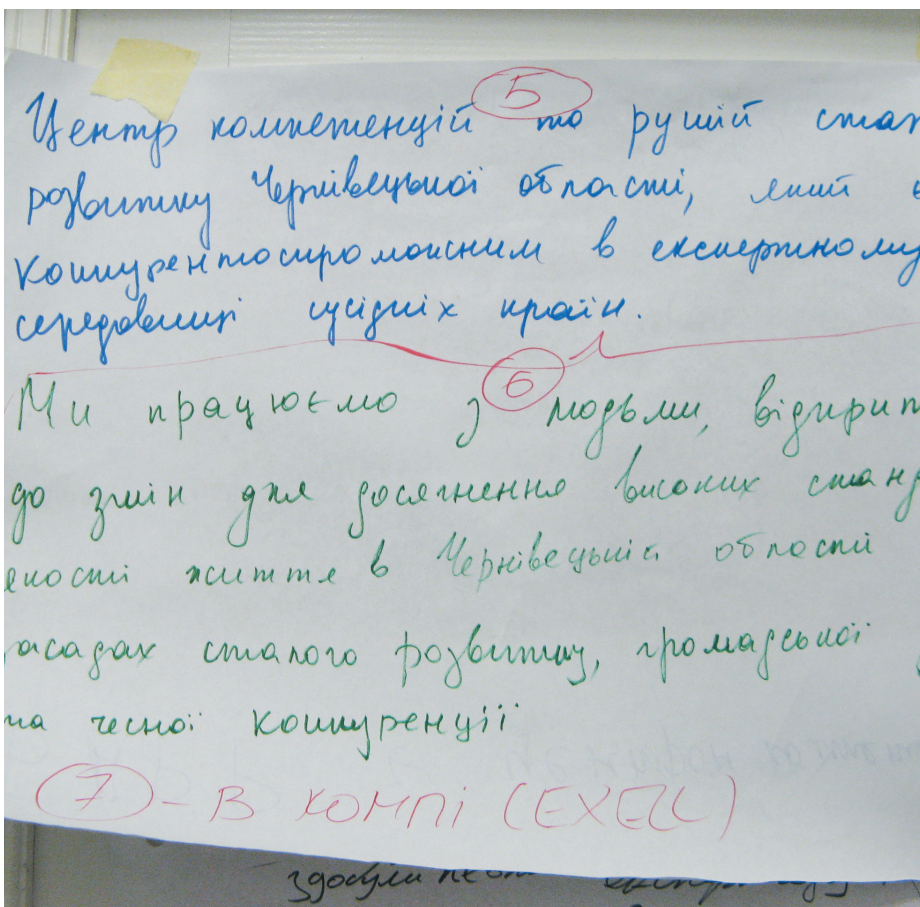 5
Центр компетенцій та рушій стал
розвитку Чернівецької області, який є
конкурентоспроможним в експертному
середовищі сусідніх країн.
6
Ми працюємо з людьми, відкрит
до змін для досягнення високих станд
якості життя в Чернівецькій області
засадах сталого розвитку, громадської
та чесної конкуренції
7 - В КОМПІ (EXELL)